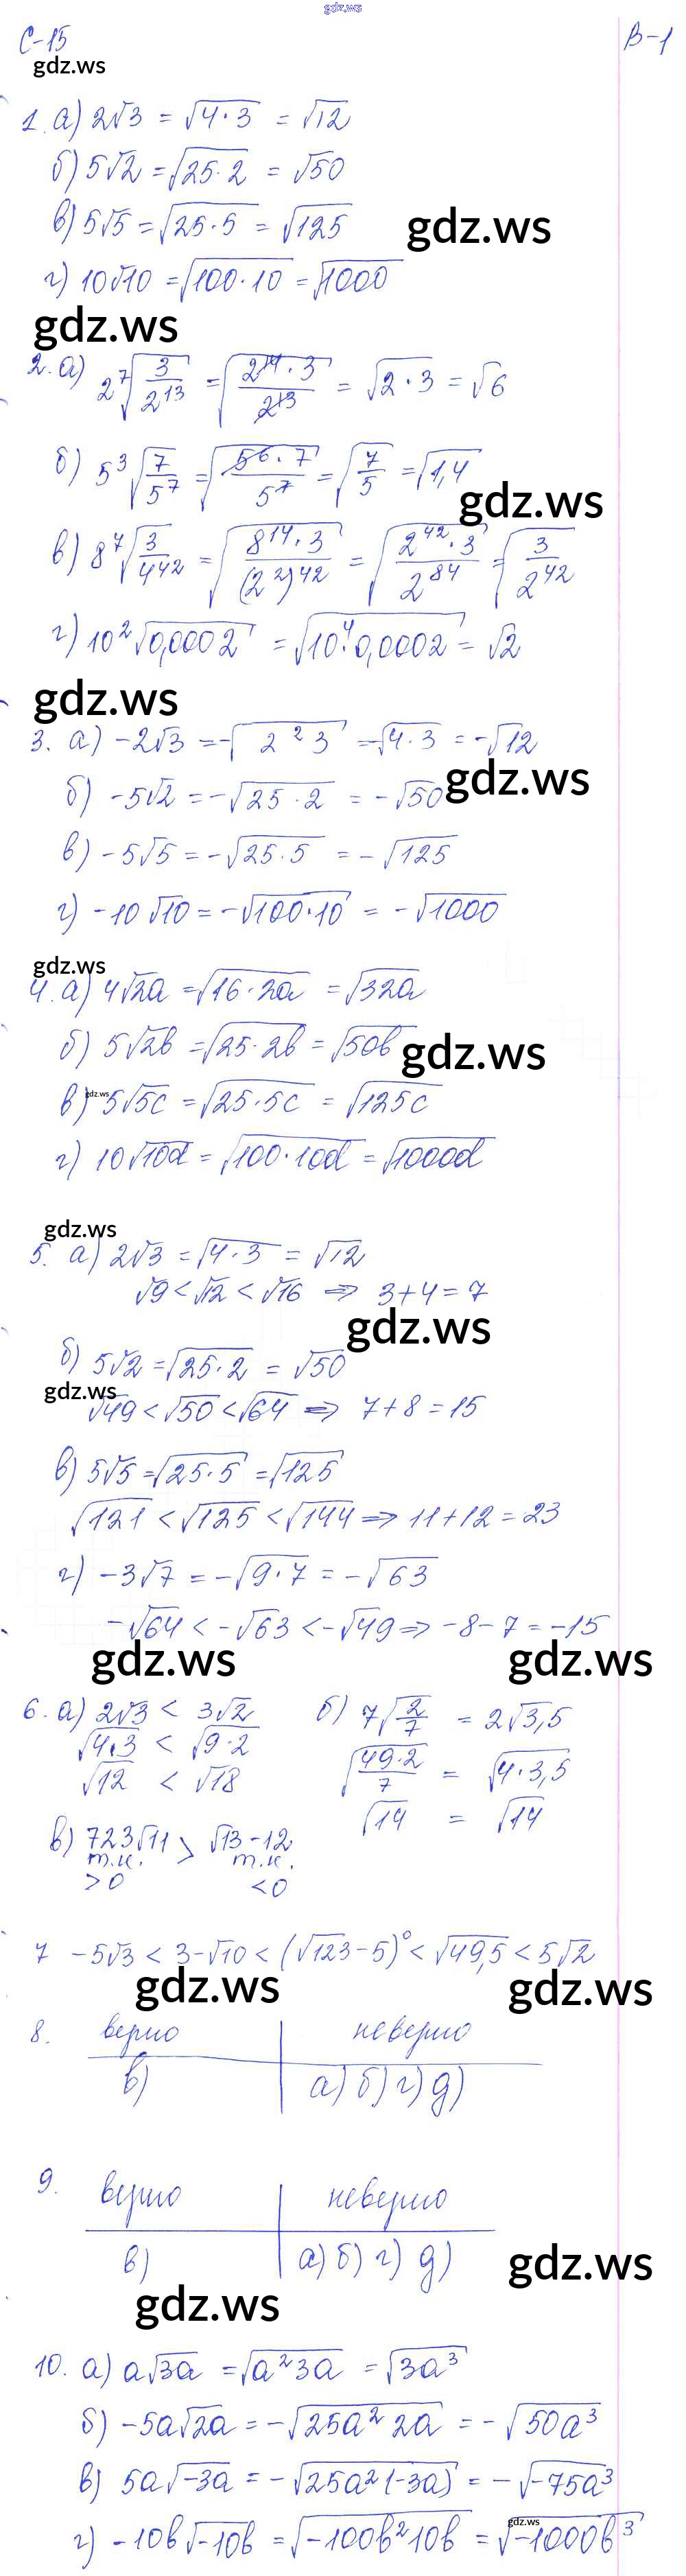 gdz.ws
С-15 В-1
gdz.ws
1. а) 2√3 = √4·3 = √12
б) 5√2 = √25·2 = √50
в) 5√5 = √25·5 = √125
gdz.ws
г) 10√10 = √100·10 = √1000
gdz.ws
2. а) 2⁷√3/2¹³ = √2¹⁴·3/2¹³ = √2·3 = √6
б) 5³√7/5⁷ = √5⁶·7/5⁷ = √7/5 = √1,4
gdz.ws
в) 8⁷√3/4⁴² = √8¹⁴·3/(2²)⁴² = √2⁴²·3/2⁸⁴ = √3/2⁴²
г) 10²√0,0002 = √10⁴·0,0002 = √2
gdz.ws
3. а) -2√3 = -√2² 3 = -√4·3 = -√12
gdz.ws
б) -5√2 = -√25·2 = -√50
в) -5√5 = -√25·5 = -√125
г) -10√10 = -√100·10 = -√1000
gdz.ws
4. а) 4√2a = √16·2a = √32a
б) 5√2b = √25·2b = √50b
gdz.ws
в) 5√5c = √25·5c = √125c
gdz.ws
г) 10√10d = √100·10d = √1000d
gdz.ws
5. а) 2√3 = √4·3 = √12
√9 < √12 < √16 ⇒ 3+4=7
gdz.ws
б) 5√2 = √25·2 = √50
gdz.ws
√49 < √50 < √64 ⇒ 7+8=15
в) 5√5 = √25·5 = √125
√121 < √125 < √144 ⇒ 11+12=23
г) -3√7 = -√9·7 = -√63
-√64 < -√63 < -√49 ⇒ -8-7=-15
gdz.ws gdz.ws
6. а) 2√3 < 3√2 б) 7√2/7 = 2√3,5
√4·3 < √9·2 √49·2/7 = √4·3,5
√12 < √18 √14 = √14
в) 723√11 > √13-12
т.к. т.к.
>0 <0
7 -5√3 < 3-√10 < (√123-5)⁰ < √49,5 < 5√2
gdz.ws gdz.ws
8. верно неверно
в) а) б) г) д)
9. верно неверно
в) а) б) г) д)
gdz.ws
gdz.ws
10. а) a√3a = √a²3a = √3a³
б) -5a√2a = -√25a²2a = -√50a³
в) 5a√-3a = -√25a²(-3a) = -√-75a³
gdz.ws
г) -10b√-10b = √-100b²10b = √-1000b³